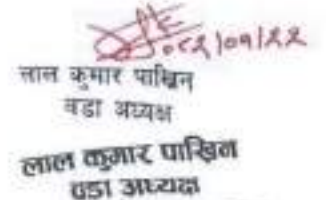 ०८२/०९/२२
लाल कुमार पाख्रिन
वडा अध्यक्ष
लाल कुमार पाख्रिन
वडा अध्यक्ष